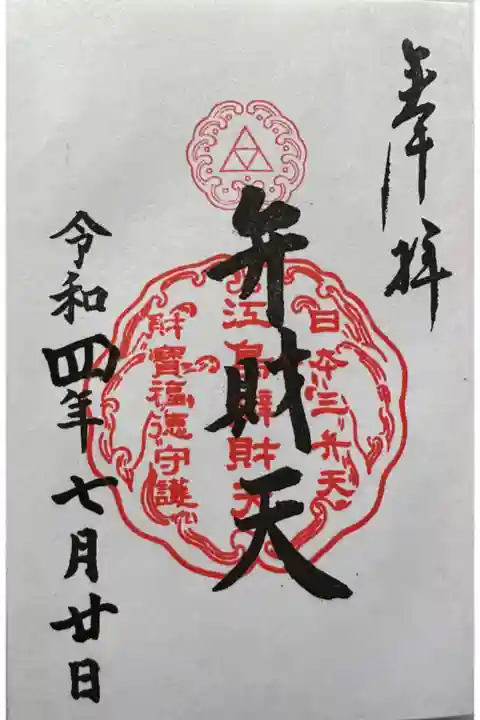 奉拝
日本三弁天
江島辯財天
財寶福徳守護
弁財天
令和四年七月廿日